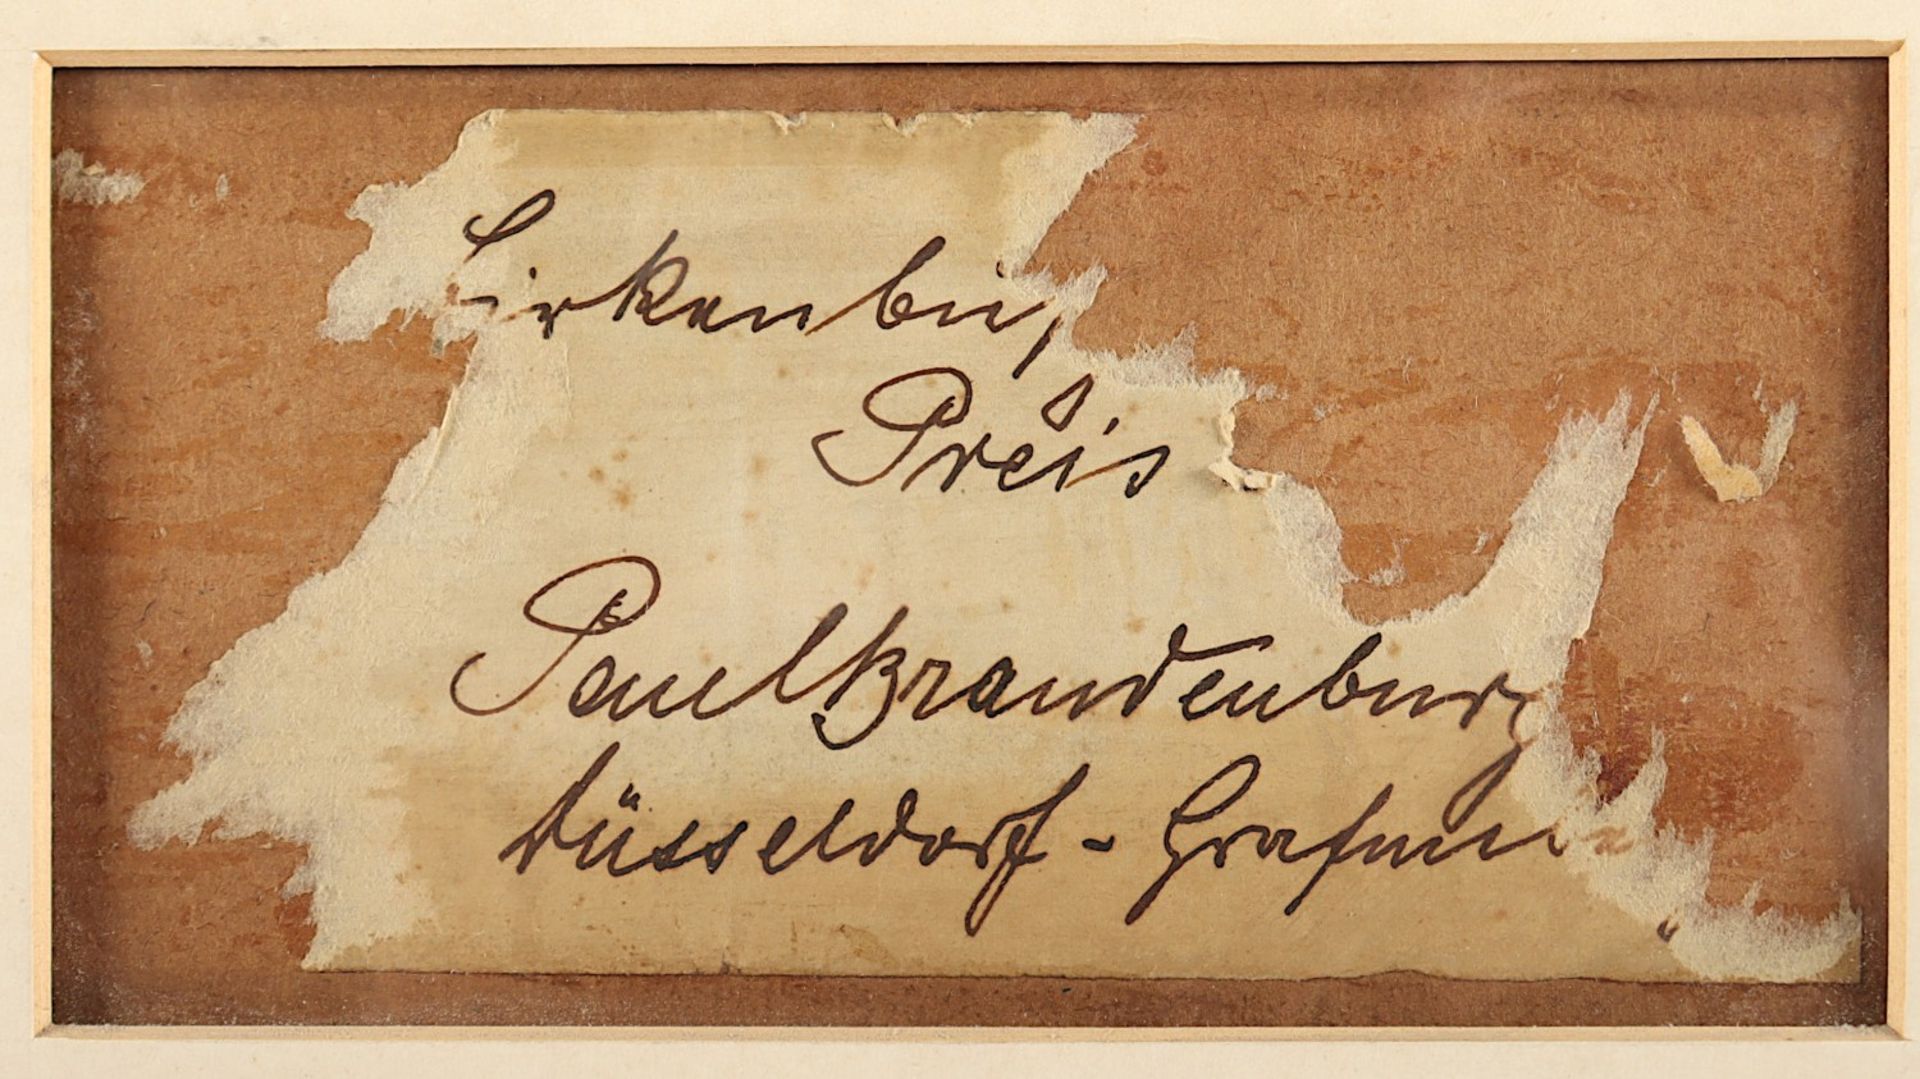 Birkenbus
Preis
Paul Brandenburg
Düsseldorf - Grafen